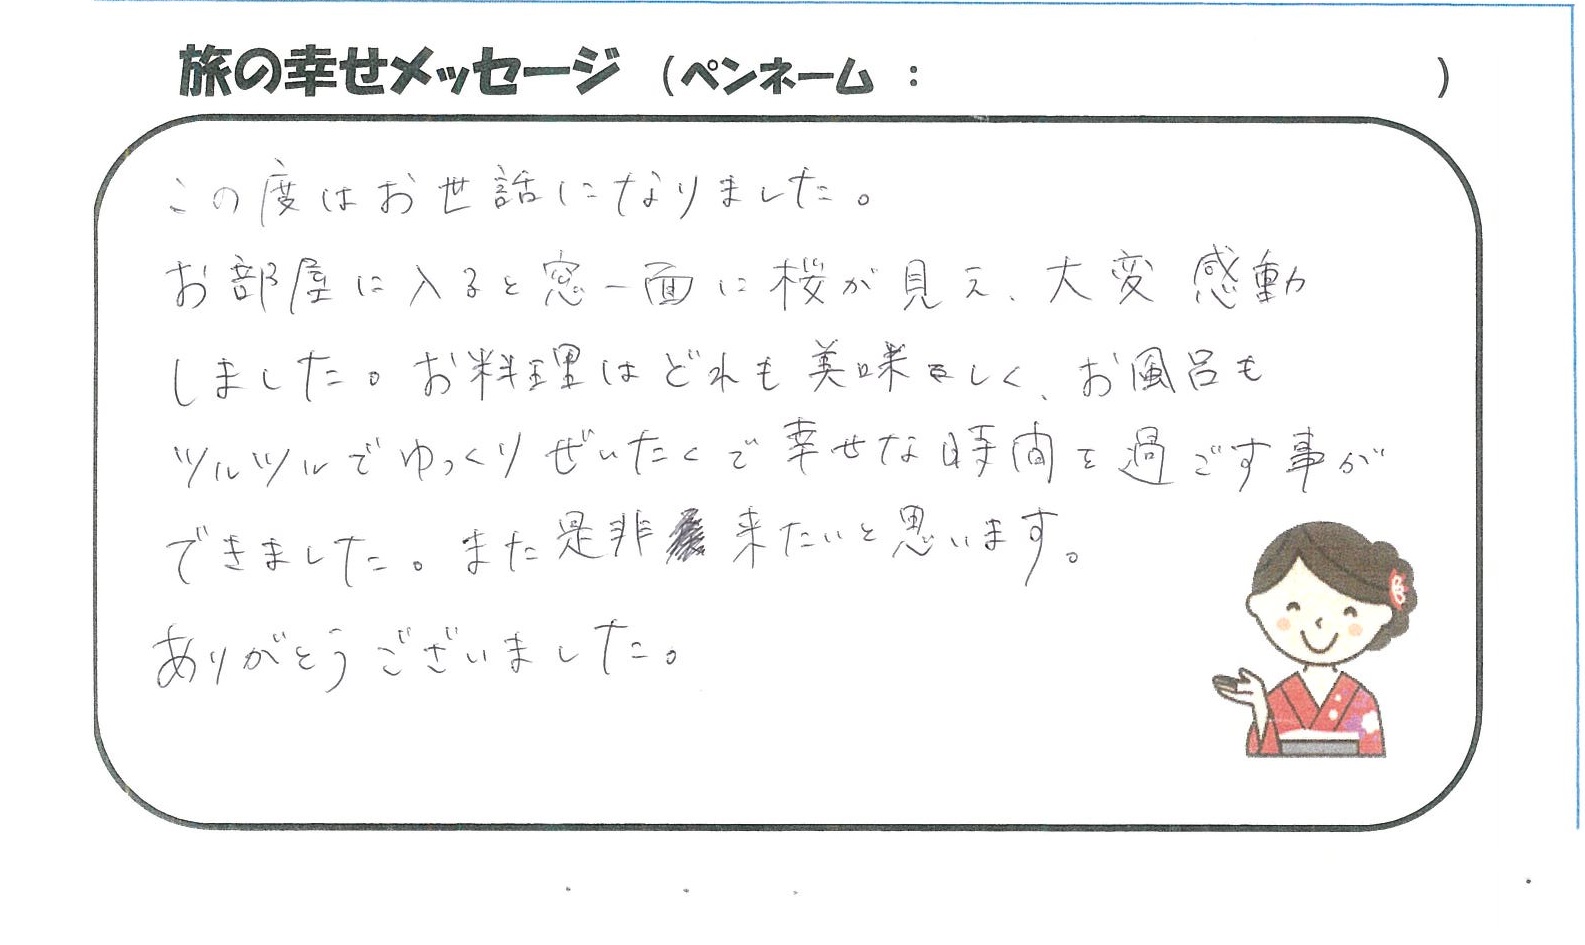 旅の幸せメッセージ （ペンネーム：　　　　）
この度はお世話になりました。
お部屋に入ると窓一面に桜が見え、大変感動
しました。お料理はどれも美味しく、お風呂も
ツルツルでゆっくりぜいたくで幸せな時間を過ごす事が
できました。また是非来たいと思います。
ありがとうございました。